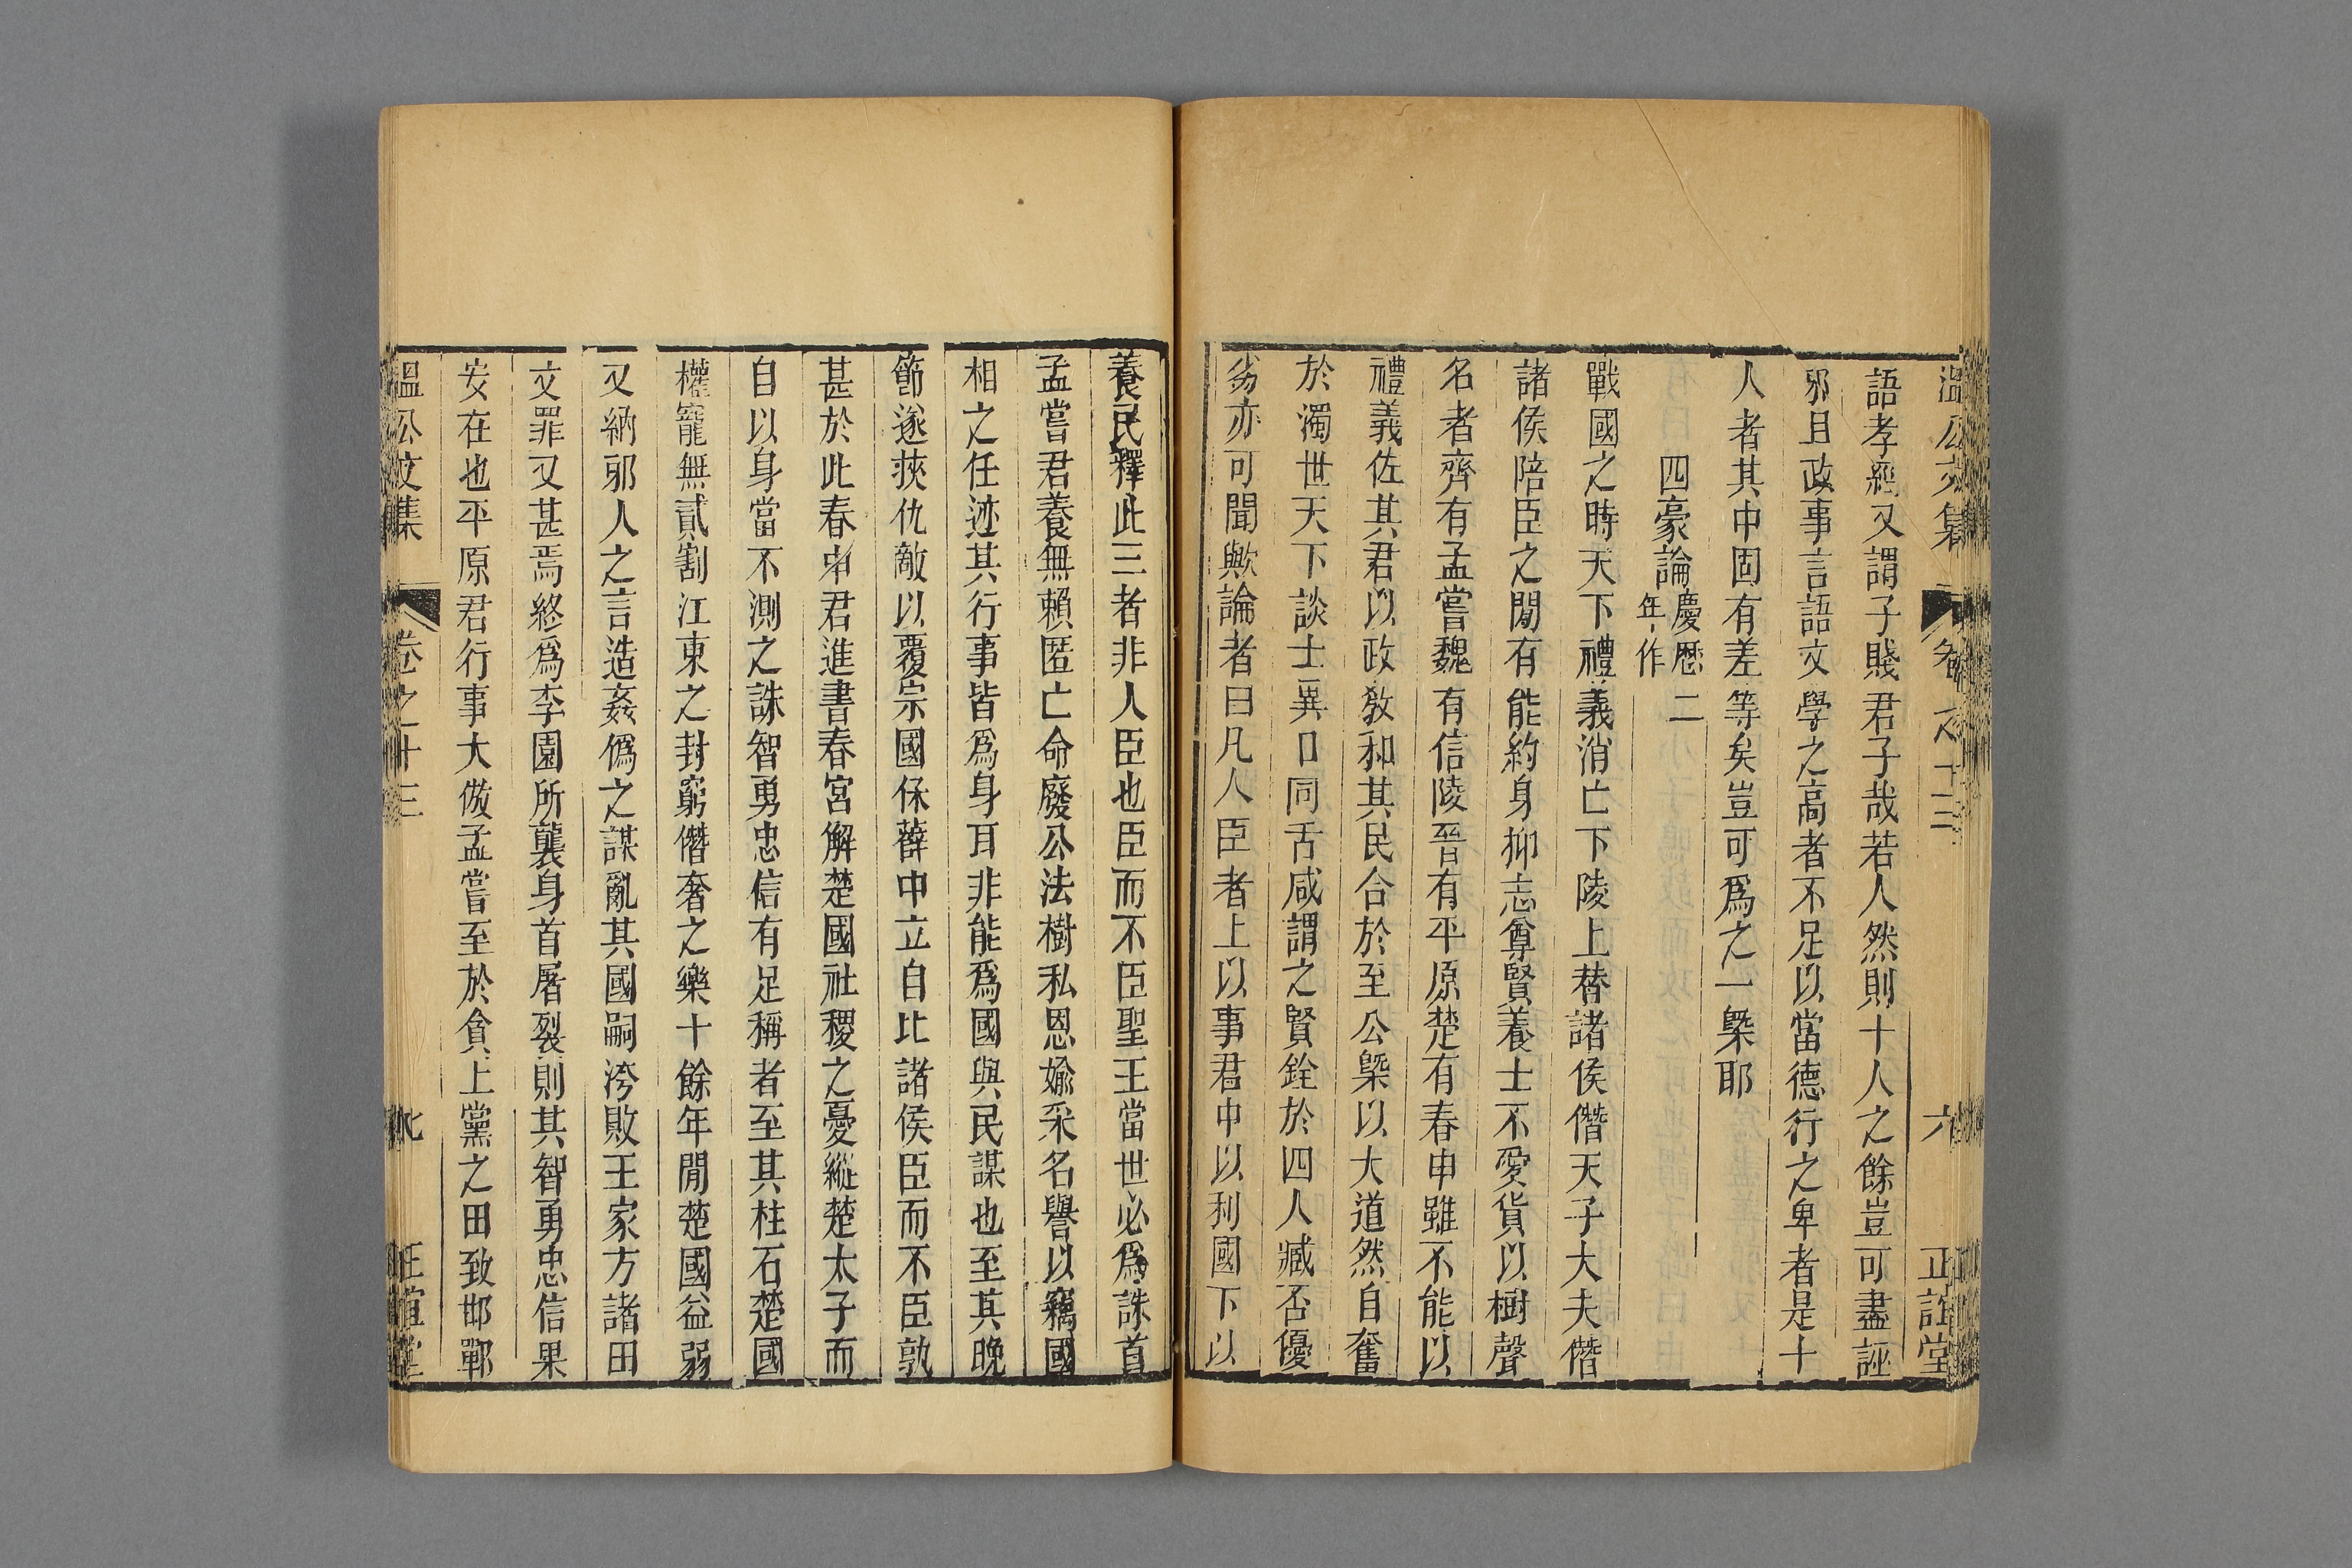 溫公文集 卷之十三 六 正誼堂
語孝經又謂子賤君子哉若人然則十人之餘豈可盡誣
邪且政事言語文學之高者不足以當德行之卑者是十
人者其中固有差等矣豈可爲之一槩耶
四豪論慶歷二年作
戰國之時天下禮義消亡下陵上替諸侯僭天子大夫僭
諸侯陪臣之閒有能約身抑志尊賢養士不愛貨以樹聲
名者齊有孟嘗魏有信陵晉有平原楚有春申雖不能以
禮義佐其君以政敎和其民合於至公槩以大道然自奮
於濁世天下談士異口同舌咸謂之賢銓於四人臧否優
劣亦可聞歟論者曰凡人臣者上以事君中以利國下以
養民釋此三者非人臣也臣而不臣聖王當世必爲誅首
孟嘗君養無賴匿亡命廢公法樹私恩婾采名譽以竊國
相之任迹其行事皆爲身耳非能爲國與民謀也至其晚
節遂挾仇敵以覆宗國保薛中立自比諸侯臣而不臣孰
甚於此春申君進書春宮解楚國社稷之憂縱楚太子而
自以身當不測之誅智勇忠信有足稱者至其柱石楚國
權寵無貳割江東之封窮僭奢之樂十餘年閒楚國益弱
又納邪人之言造姦僞之謀亂其國嗣洿敗王家方諸田
文罪又甚焉終爲李園所襲身首屠裂則其智勇忠信果
安在也平原君行事大倣孟嘗至於貪上黨之田致邯鄲
溫公文集 卷之十三 七 正誼堂